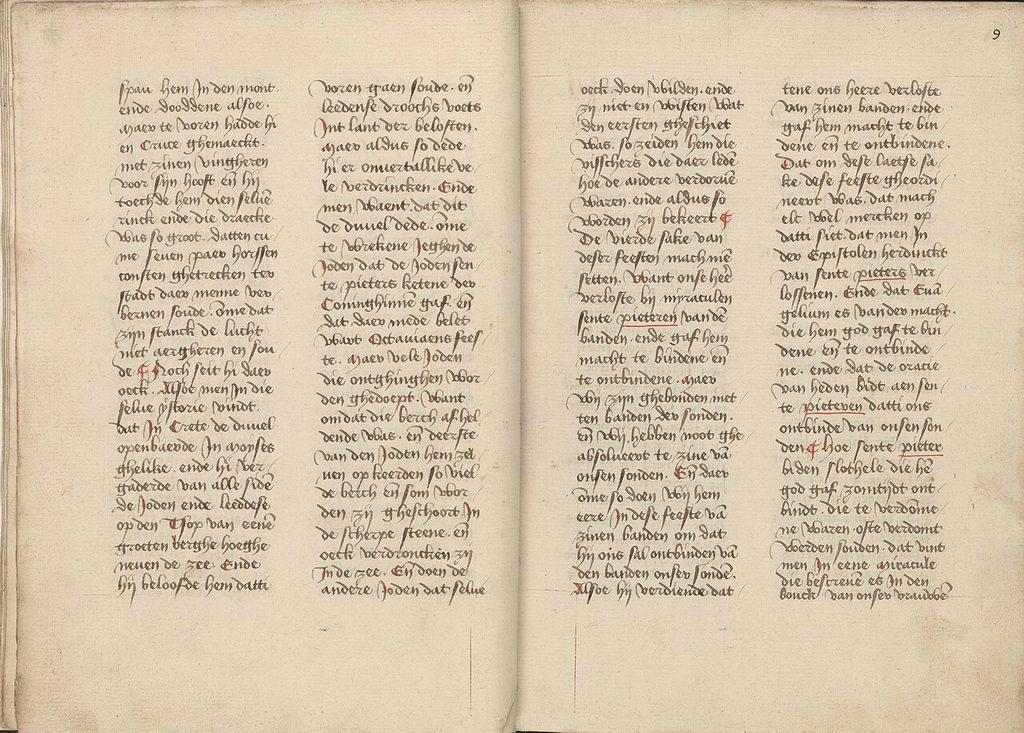 spau hem In den mont.
ende dooddene alsoe.
Maer te voren hadde hi
en Cruce ghemaeckt.
met zinen vingheren
voor sijn hooft en̄ hij
toechde hem dien seluē
rinck ende die draecke
was so groot. datten cu-
me seuen paer horssen
consten ghetrecken ter
stadt daer menne ver-
bernen soude. Ome dat
zijn stanck de lucht
niet aergheren en sou-
de ¶ Noch seit hi daer
oeck. Alsoe men In die
selue ystorie vindt.
dat In Crete de duuel
openbaerde In moyses
ghelike. ende hi ver-
gaderde van alle sidē
de Joden ende leeddese
op den Tsop van eenē
groeten berghe hoeghe
neuen de zee. Ende
hij beloofde hem datti
voren gaen soude. en̄
leedense droochs voets
Int lant der beloften.
Maer aldus so dede
hi er onuertallike ve-
le verdrincken. Ende
men waent. dat dit
de duuel dede. Ome
te wrekene Jeghen de
Joden dat de Joden sen-
te pieters ketene der
Coninghinne gaf. en̄
dat daer mede belet
wart Octauiaens fees-
te. Maer vele Joden
die ontghinghen wor-
den ghedoept. want
omdat die berch af hel-
dende was. en̄ deerste
van den Joden hem zel-
uen op keerden so viel
de berch en̄ som wor-
den zij gheschoort In
de scherpe steene. en̄
oeck verdroncken zij
In de zee. En̄ doen de
andere Joden dat selue
9
oeck doen wilden. ende
zij niet en wisten wat
den eersten gheschiet
was. so zeiden hem die
visschers die daer ledē
hoe de andere verdoruē
waren. ende aldus so
worden zij bekeert ¶
De vierde sake van
deser feesten mach mē
setten. want onse heē
verloste bij myraculen
sente pieteren van dē
banden. ende gaf hem
macht te bindene en̄
te ontbindene. Maer
wij zijn ghebonden met-
ten banden der sonden.
en̄ wij hebben noot ghe-
absolueert te zine vā
onsen sonden. En̄ daer
ome so doen wij hem
eere In dese feeste vā
zinen banden om dat
hij ons sal ontbinden vā
den banden onser sondē.
Alsoe hij verdiende dat
tene ons heere verloste
van zinen banden. ende
gaf hem macht te bin-
dene en̄ te ontbindene.
Dat om dese laetse sa-
ke dese feeste gheordi-
neert was. dat mach
elc wel mercken op
datti siet. dat men In
der Epistolen herdinckt
van sente pieters ver-
lossenen. Ende dat Euā-
gelium es van der macht.
die hem god gaf te bin-
dene en̄ te ontbinde-
ne. ende dat de oracie
van heden bidt aen sen-
te pieteren datti ons
ontbinde van onsen son-
den ¶ hoe sente pieter
biden slothele die hē
god gaf zomtijdt ont-
bindt. die te verdome-
ne waren ofte verdomt
werden souden. dat vint
men In eene miracule
die bescreuē es In den
bouck van onser vrauwē